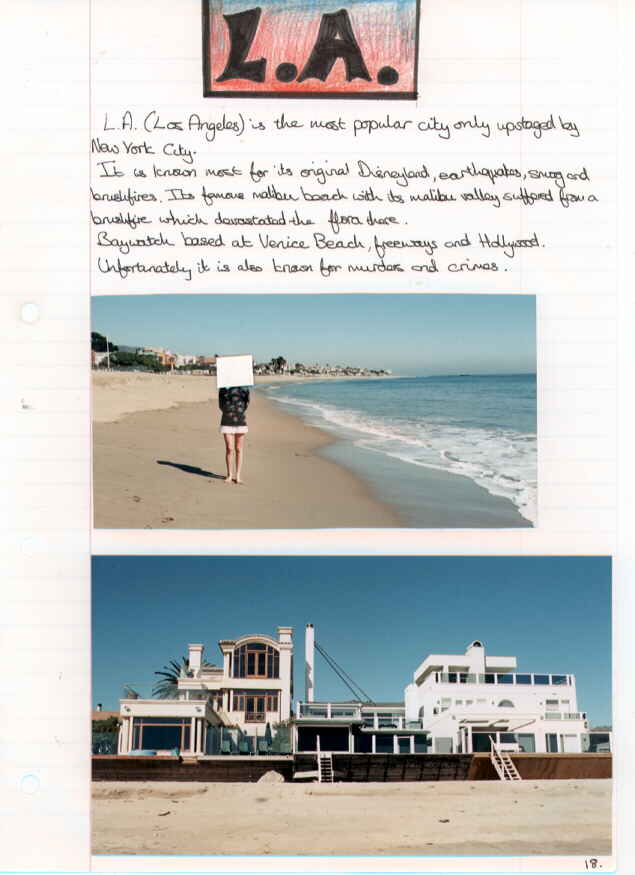 L.A.
L.A. (Los Angeles) is the most popular city only upstaged by
New York City.
It is known most for its original Disneyland, earthquakes, smog and
brushfires. Its famous malibu beach with its malibu valley suffered from a
brushfire which devastated the flora there.
Baywatch based at Venice Beach, freeways and Hollywood.
Unfortunately it is also known for murders and crimes.
18.